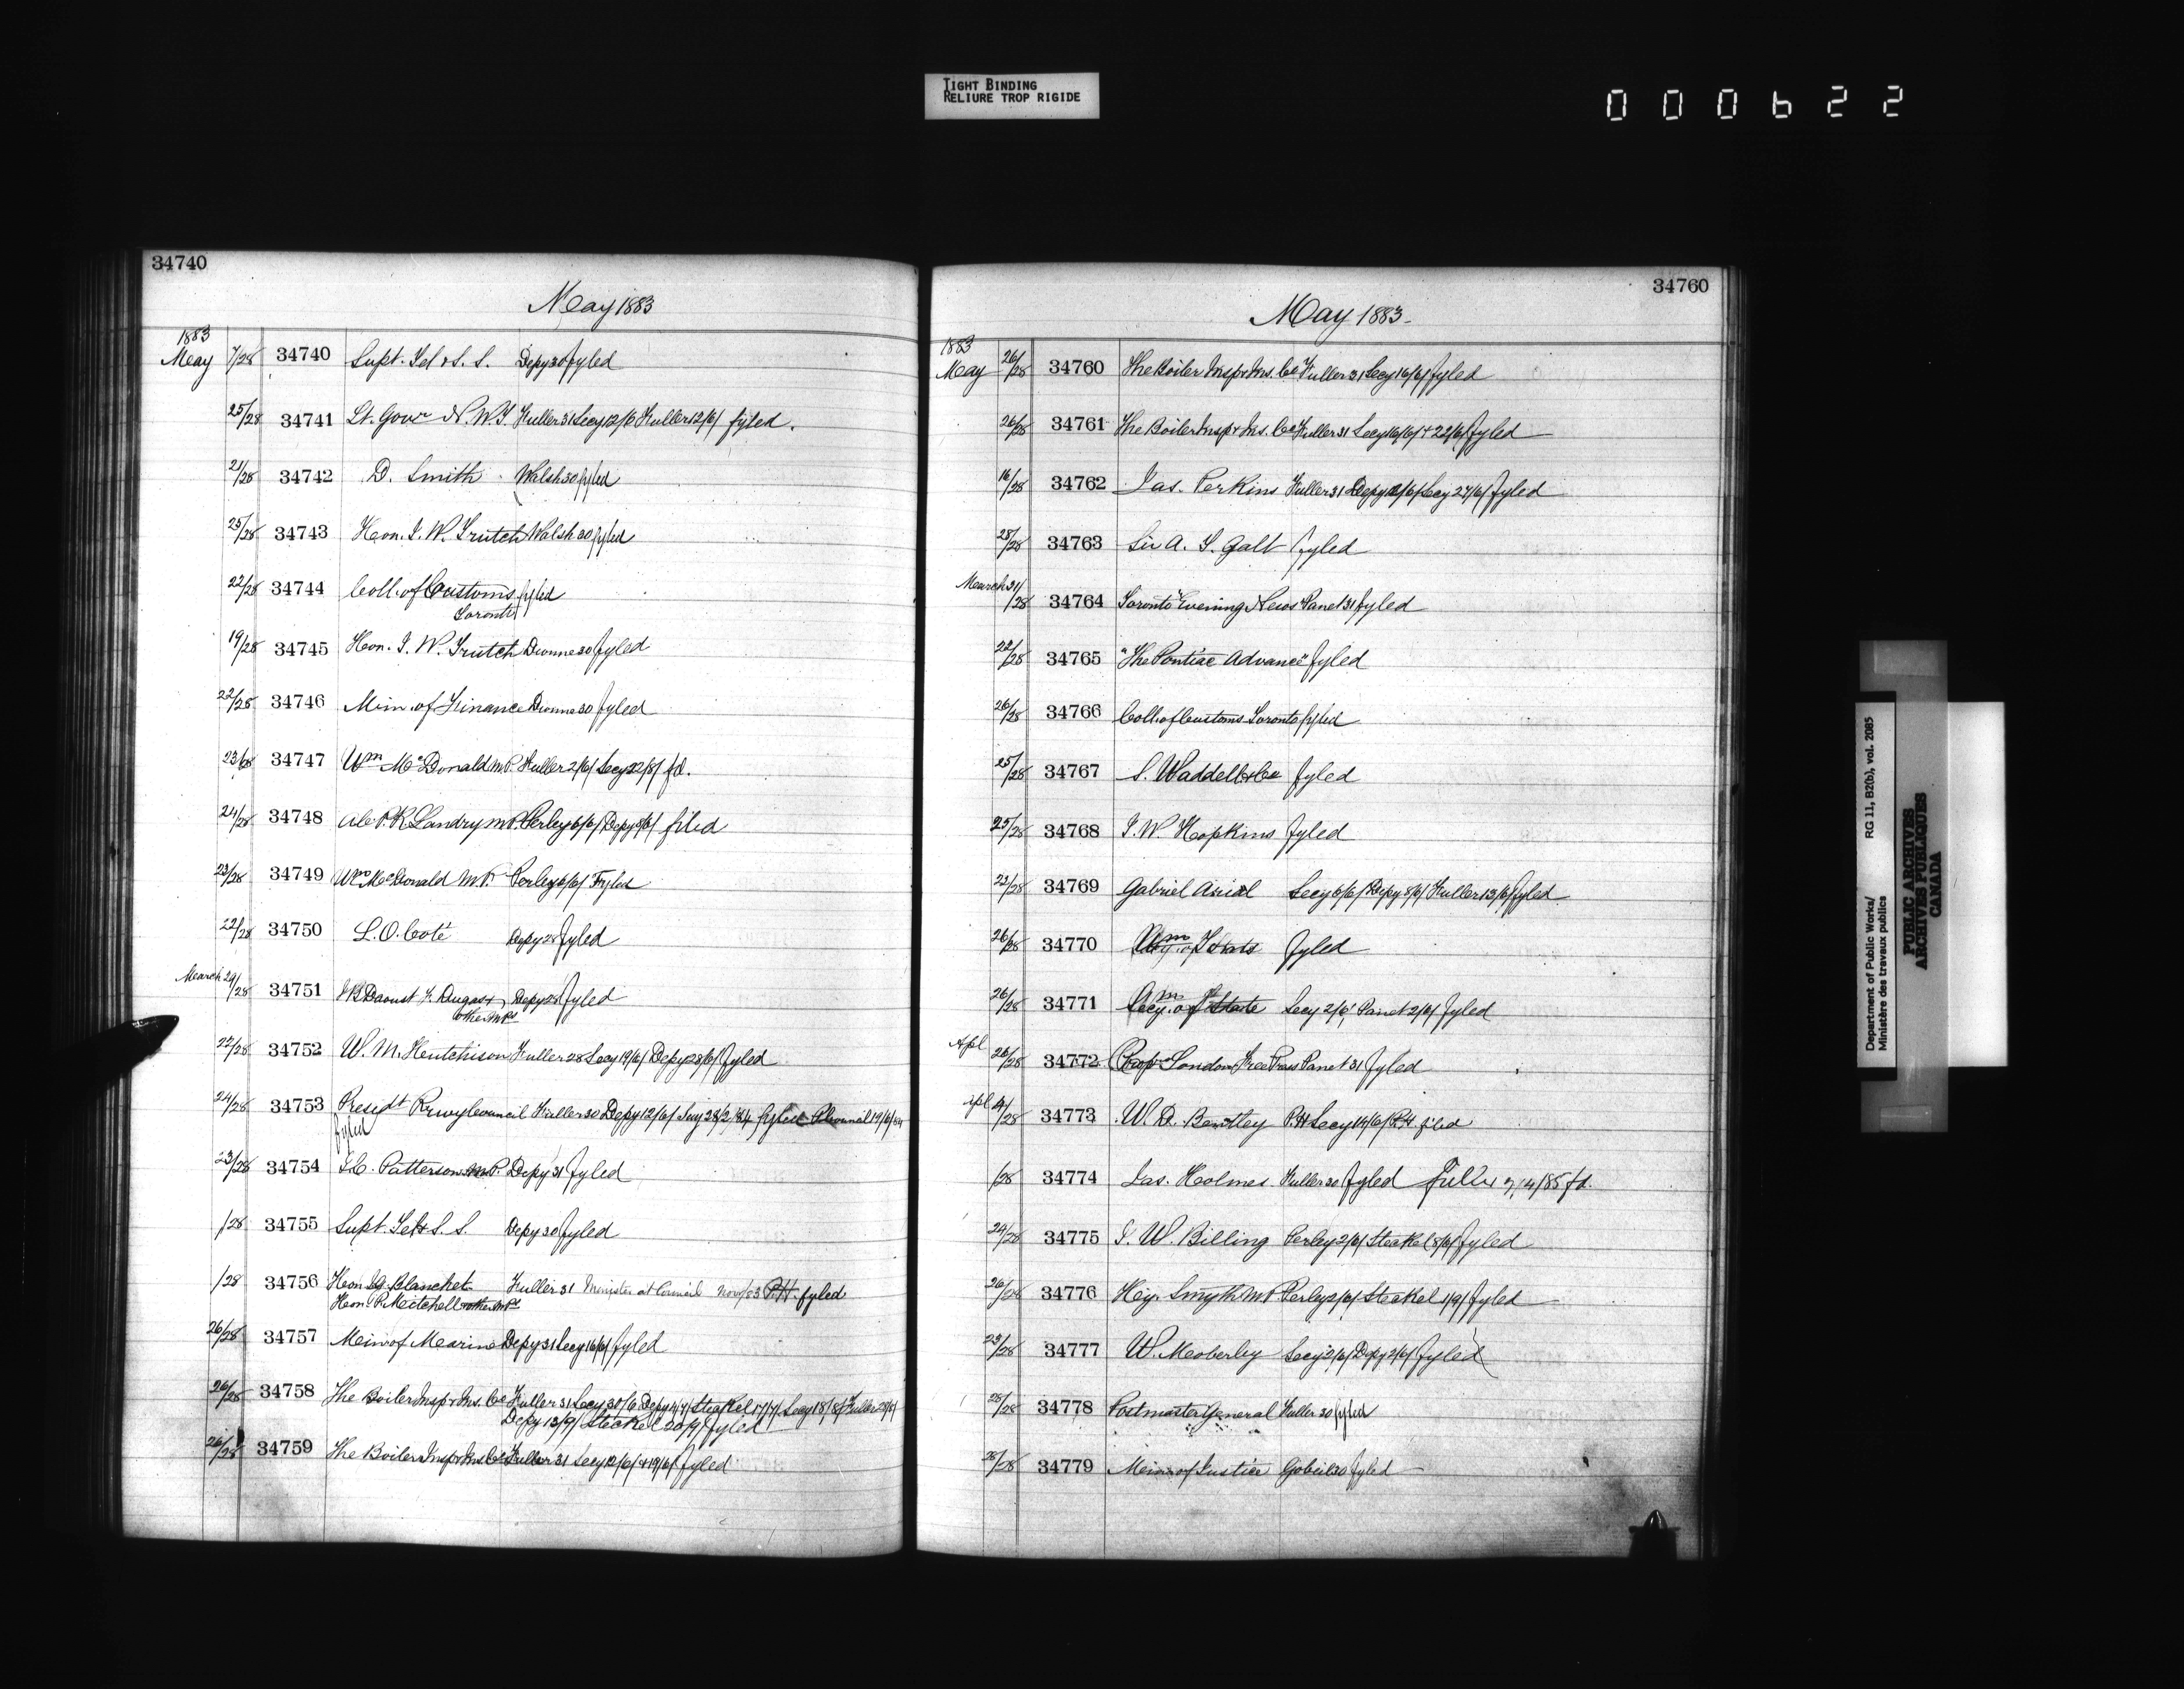 TIGHT BINDING
RELIURE TROP RIGIDE
000622
34740
May 1883
1883
May 7/28 34740 Supt. Tel & S. S. Depy 30 fyled
25/28 34741 Lt. Govr N.W.T. Fuller 31 Secy 12/6 Fuller 12/6/ fyled.
21/28 34742 D. Smith Walsh 30 fyled
25/28 34743 Hon. J. W. Trutch Walsh 30 fyled
22/28 34744 Coll. of Customs fyled
Toronto
19/28 34745 Hon. J. W. Trutch Dionne 30 fyled
22/28 34746 Min. of Finance Dionne 30 fyled
23/28 34747 Wm McDonald M.P. Fuller 2/6/ Secy 22/8/ fd.
24/28 34748 P. R. Landry M.P. Perley 6/6/ Depy 8/6/ filed
23/28 34749 Wm McDonald M.P. Perley 6/6/ Fyled
22/28 34750 L. O. Coté Depy 28 fyled
March 29/28 34751 J B Daoust F. Dugas & Depy 28 fyled
other MPs
22/28 34752 W. M. Hutchison Fuller 28 Secy 19/6/ Depy 28/6/ fyled
24/28 34753 Presidt Council Fuller 30 Depy 12/6/ 28/2/84 fyled Council 19/6/84
fyled
23/28 34754 J C. Patterson M.P. Depy 31 fyled
/28 34755 Supt. Tel & S. S. Depy 30 fyled
/28 34756 Hon. Blanchet Fuller 31 Minister at Council Nov/83 P.H. fyled
Hon. P. Mitchell & other MPs
26/28 34757 Min. of Marine Depy 31 Secy 16/6/ fyled
26/28 34758 The Boiler Insp & Ins. Co Fuller 31 Secy 30/6 Depy 4/7/ Steckel 17/7/ Secy 18/8/ Fuller
Depy 13/9/ Steckel 20/9/ fyled
26/28 34759 The Boiler Insp & Ins. Co Fuller 31 Secy 12/6/ & 19/6/ fyled
34760
May 1883-
1883
May 26/28 34760 The Boiler Insp & Ins. Co Fuller 31 Secy 16/6/ fyled
26/28 34761 The Boiler Insp & Ins. Co Fuller 31 Secy 16/6/ & 22/6/ fyled
16/28 34762 Jas. Perkins Fuller 31 Depy Secy 27/6/ fyled
28/28 34763 Sir A. T. Galt fyled
March 31/28 34764 Toronto Evening News Panet 31 fyled
22/28 34765 "The Pontiac Advance" fyled
26/28 34766 Coll. of Customs Toronto fyled
25/28 34767 S. Waddell & Co fyled
25/28 34768 J. W. Hopkins fyled
23/28 34769 Gabriel Secy 6/6/ Depy 8/6/ Fuller 13/6/ fyled
26/28 34770 fyled
26/28 34771 Secy. of State Secy 2/6/ Panet 2/6/ fyled
Apl 26/28 34772 Prop London Free Press Panet 31 fyled
/28 34773 W. D. Bentley P.H Secy 14/6/ P.H. filed
/28 34774 Jas. Holmes Fuller 30 fyled Fuller 7/4/85 fd.
24/28 34775 J. W. Billing Perley 2/6/ Steckel 8/6/ fyled
26/28 34776 Hy. Smyth M.P. Perley 2/6/ Steckel 1/9/ fyled
23/28 34777 W. Moberley Secy 2/6/ Depy 2/6/ fyled
28/28 34778 Postmaster General Fuller 30 fyled
28/28 34779 Min. of Justice Gobeil 30 fyled
Department of Public Works/ RG 11, B2(b), vol. 2085
Ministère des travaux publics
PUBLIC ARCHIVES
ARCHIVES PUBLIQUES
CANADA